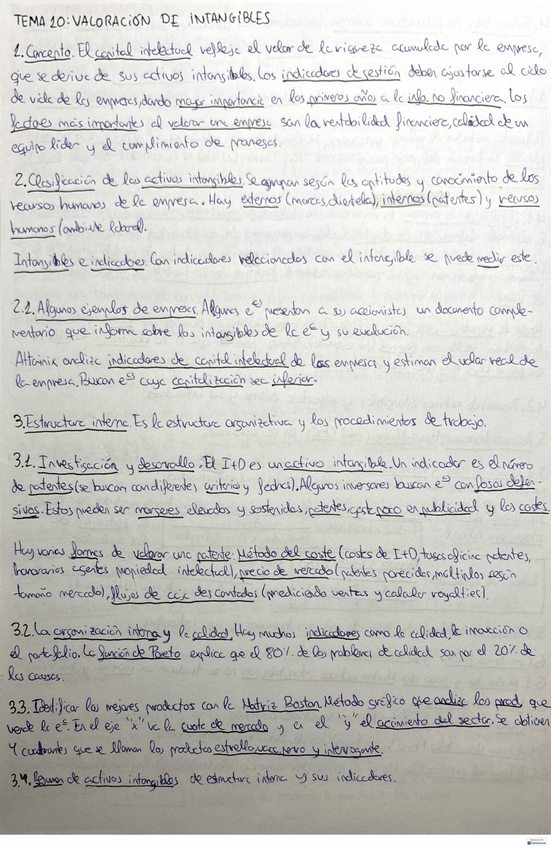 TEMA 10: VALORACIÓN DE INTANGIBLES
1. Concepto. El capital intelectual refleja el valor de la riqueza acumulada por la empresa,
que se deriva de sus activos intangibles. Los indicadores de gestión deben ajustarse al ciclo
de vida de las empresas, dando mayor importancia en los primeros años a la info. no financiera. Los
factores más importantes al valorar una empresa son la rentabilidad financiera, calidad de un
equipo líder y el cumplimiento de promesas.
2. Clasificación de los activos intangibles. Se agrupan según las aptitudes y conocimiento de los
recursos humanos de la empresa. Hay externos (marcas, clientela), internos (patentes) y recursos
humanos (ambiente laboral).
Intangibles e indicadores. Con indicadores relacionados con el intangible se puede medir este.
2.1. Algunos ejemplos de empresas. Algunas eᵃˢ presentan a sus accionistas un documento comple-
mentario que informa sobre los intangibles de la eᵃ y su evolución.
analiza indicadores de capital intelectual de las empresas y estiman el valor real de
la empresa. Buscan eᵃˢ cuya capitalización sea inferior.
3. Estructura interna. Es la estructura organizativa y los procedimientos de trabajo.
3.1. Investigación y desarrollo. El I+D es un activo intangible. Un indicador es el número
de patentes (se buscan con diferentes criterios y fechas). Algunos inversores buscan eᵃˢ con fosos defen-
sivos. Estos pueden ser margenes elevados y sostenidos, patentes, gaste poco en publicidad y los costes.
Hay varias formas de valorar una patente: Método del coste (costes de I+D, tasas oficina patentes,
honorarios agentes propiedad intelectual), precio de mercado (patentes parecidas, múltiplos según
tamaño mercado), flujos de caja descontados (prediciendo ventas y calcular royalties).
3.2. La organización interna y la calidad. Hay muchos indicadores como la calidad, la innovación o
el portafolio. La función de Pareto explica que el 80% de los problemas de calidad son por el 20% de
las causas.
3.3. Identificar los mejores productos con la Matriz Boston. Método gráfico que analiza los prod. que
vende la eᵃ. En el eje "x" va la cuota de mercado y en el "y" el crecimiento del sector. Se obtienen
4 cuadrantes que se llaman los productos estrella, vaca, perro y interrogante.
3.4. Resumen de activos intangibles de estructura interna y sus indicadores.